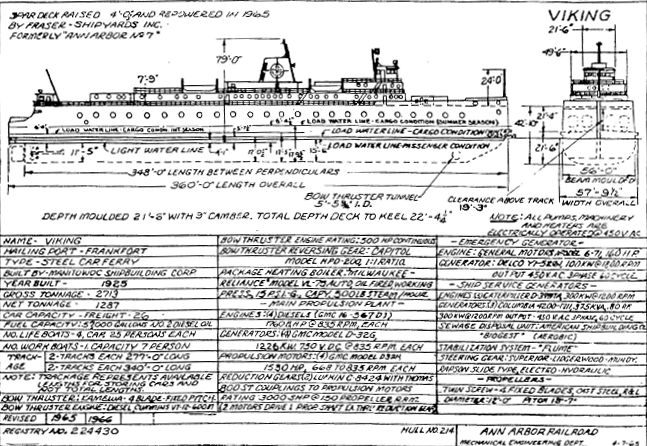 SPAR DECK RAISED 4'-0" AND REPOWERED IN 1965
BY FRASER-SHIPYARDS INC.
FORMERLY "ANN ARBOR NO 7"
VIKING
21'-6"
49'-6"
79'-0"
7'-9"
24'-0"
LOAD WATER LINE-CARGO CONDN. INT SEASON
LOAD WATER LINE-CARGO CONDITION (SUMMER SEASON)
LOAD WATER LINE-CARGO CONDITION
LIGHT WATER LINE
LOAD WATER LINE-PASSENGER CONDITION
11'-5"
42'-0"
21'-4"
21'-6"
348'-0" LENGTH BETWEEN PERPENDICULARS
360'-0" LENGTH OVERALL
BOW THRUSTER TUNNEL
I.D.
CLEARANCE ABOVE TRACK
19'-3"
56'-0"
BEAM MOULDED
57'-9½"
WIDTH OVERALL
DEPTH MOULDED 21'-6" WITH 3" CAMBER. TOTAL DEPTH DECK TO KEEL 22'-4½"
NOTE: ALL PUMPS, MACHINERY
AND HEATERS ARE
ELECTRICALLY OPERATED 450V AC
NAME- VIKING
HAILING PORT- FRANKFORT
TYPE-STEEL CAR FERRY
BUILT BY-MANITOWOC SHIPBUILDING CORP
YEAR BUILT- 1925
GROSS TONNAGE- 2713
NET TONNAGE- 1287
CAR CAPACITY-FREIGHT-26
FUEL CAPACITY: 57000 GALLONS NO 2 DIESEL OIL
NO LIFE BOATS- CAP. 25 PERSONS EACH
NO WORK BOATS-1. CAPACITY 7 PERSON
TRACK- 2-TRACKS EACH 277'-0" LONG
AGE 2-TRACKS EACH 340'-0" LONG
NOTE: TRACKAGE REPRESENTS AVAILABLE
LENGTHS FOR STORING CARS AND
NOT TOTAL LENGTHS
BOW THRUSTER: KAMEWA-4 BLADE-FIXED PITCH
BOW THRUSTER ENGINE: DIESEL CUMMINS
REVISED 1965 1966
REGISTRY NO. 224430
BOW THRUSTER ENGINE RATING: 500 HP CONTINUOUS
BOW THRUSTER REVERSING GEAR: CAPITOL
MODEL HPD 1:1 RATIO
PACKAGE HEATING BOILER: MILWAUKEE-
RELIANCE MODEL AUTO OIL FIRED WORKING
PRESS. 15 PSIG, CAP'Y LB STEAM/HOUR
-MAIN PROPULSION PLANT-
ENGINES: (4) DIESELS (GMC 16-567D1)
835 RPM, EACH
GENERATORS: (4) GMC MODEL
1226 KW, 750 V DC @ 835 RPM EACH
PROPULSION MOTORS: (4) GMC MODEL
1530 HP, 668 TO 835 RPM EACH
REDUCTION GEARS (2) WITH THOMAS
BOOST COUPLINGS TO PROPULSION MOTORS
RATING 3000 SHP @ 150 PROPELLER R.P.M.
(2 MOTORS DRIVE 1 PROP. SHAFT EA THRU REDUCTION GEAR)
-EMERGENCY GENERATOR-
ENGINE: GENERAL MOTORS MODEL 6-71, 160 HP
GENERATOR: DELCO 1200 RPM
OUTPUT 450 V AC 3 PHASE 60 CYCLE
-SHIP SERVICE GENERATORS-
300 KW @ 1200 RPM
300 KW @ 1200 RPM OUTPUT-450 V AC 3 PHASE, 60 CYCLE
SEWAGE DISPOSAL UNIT: AMERICAN SHIPBUILDING CO
"BIOGEST" (AEROBIC)
STABILIZATION SYSTEM- "FLUME"
STEERING GEAR: SUPERIOR-LIDGERWOOD-MUNDY,
RAPSON SLIDE TYPE, ELECTRO-HYDRAULIC
-PROPELLERS-
TWIN SCREW-4 FIXED BLADES, CAST STEEL, R&L
DIAMETER 12'-0" PITCH
HULL NO. 214
ANN ARBOR RAILROAD
MECHANICAL ENGINEERING DEPT.
4-7-65